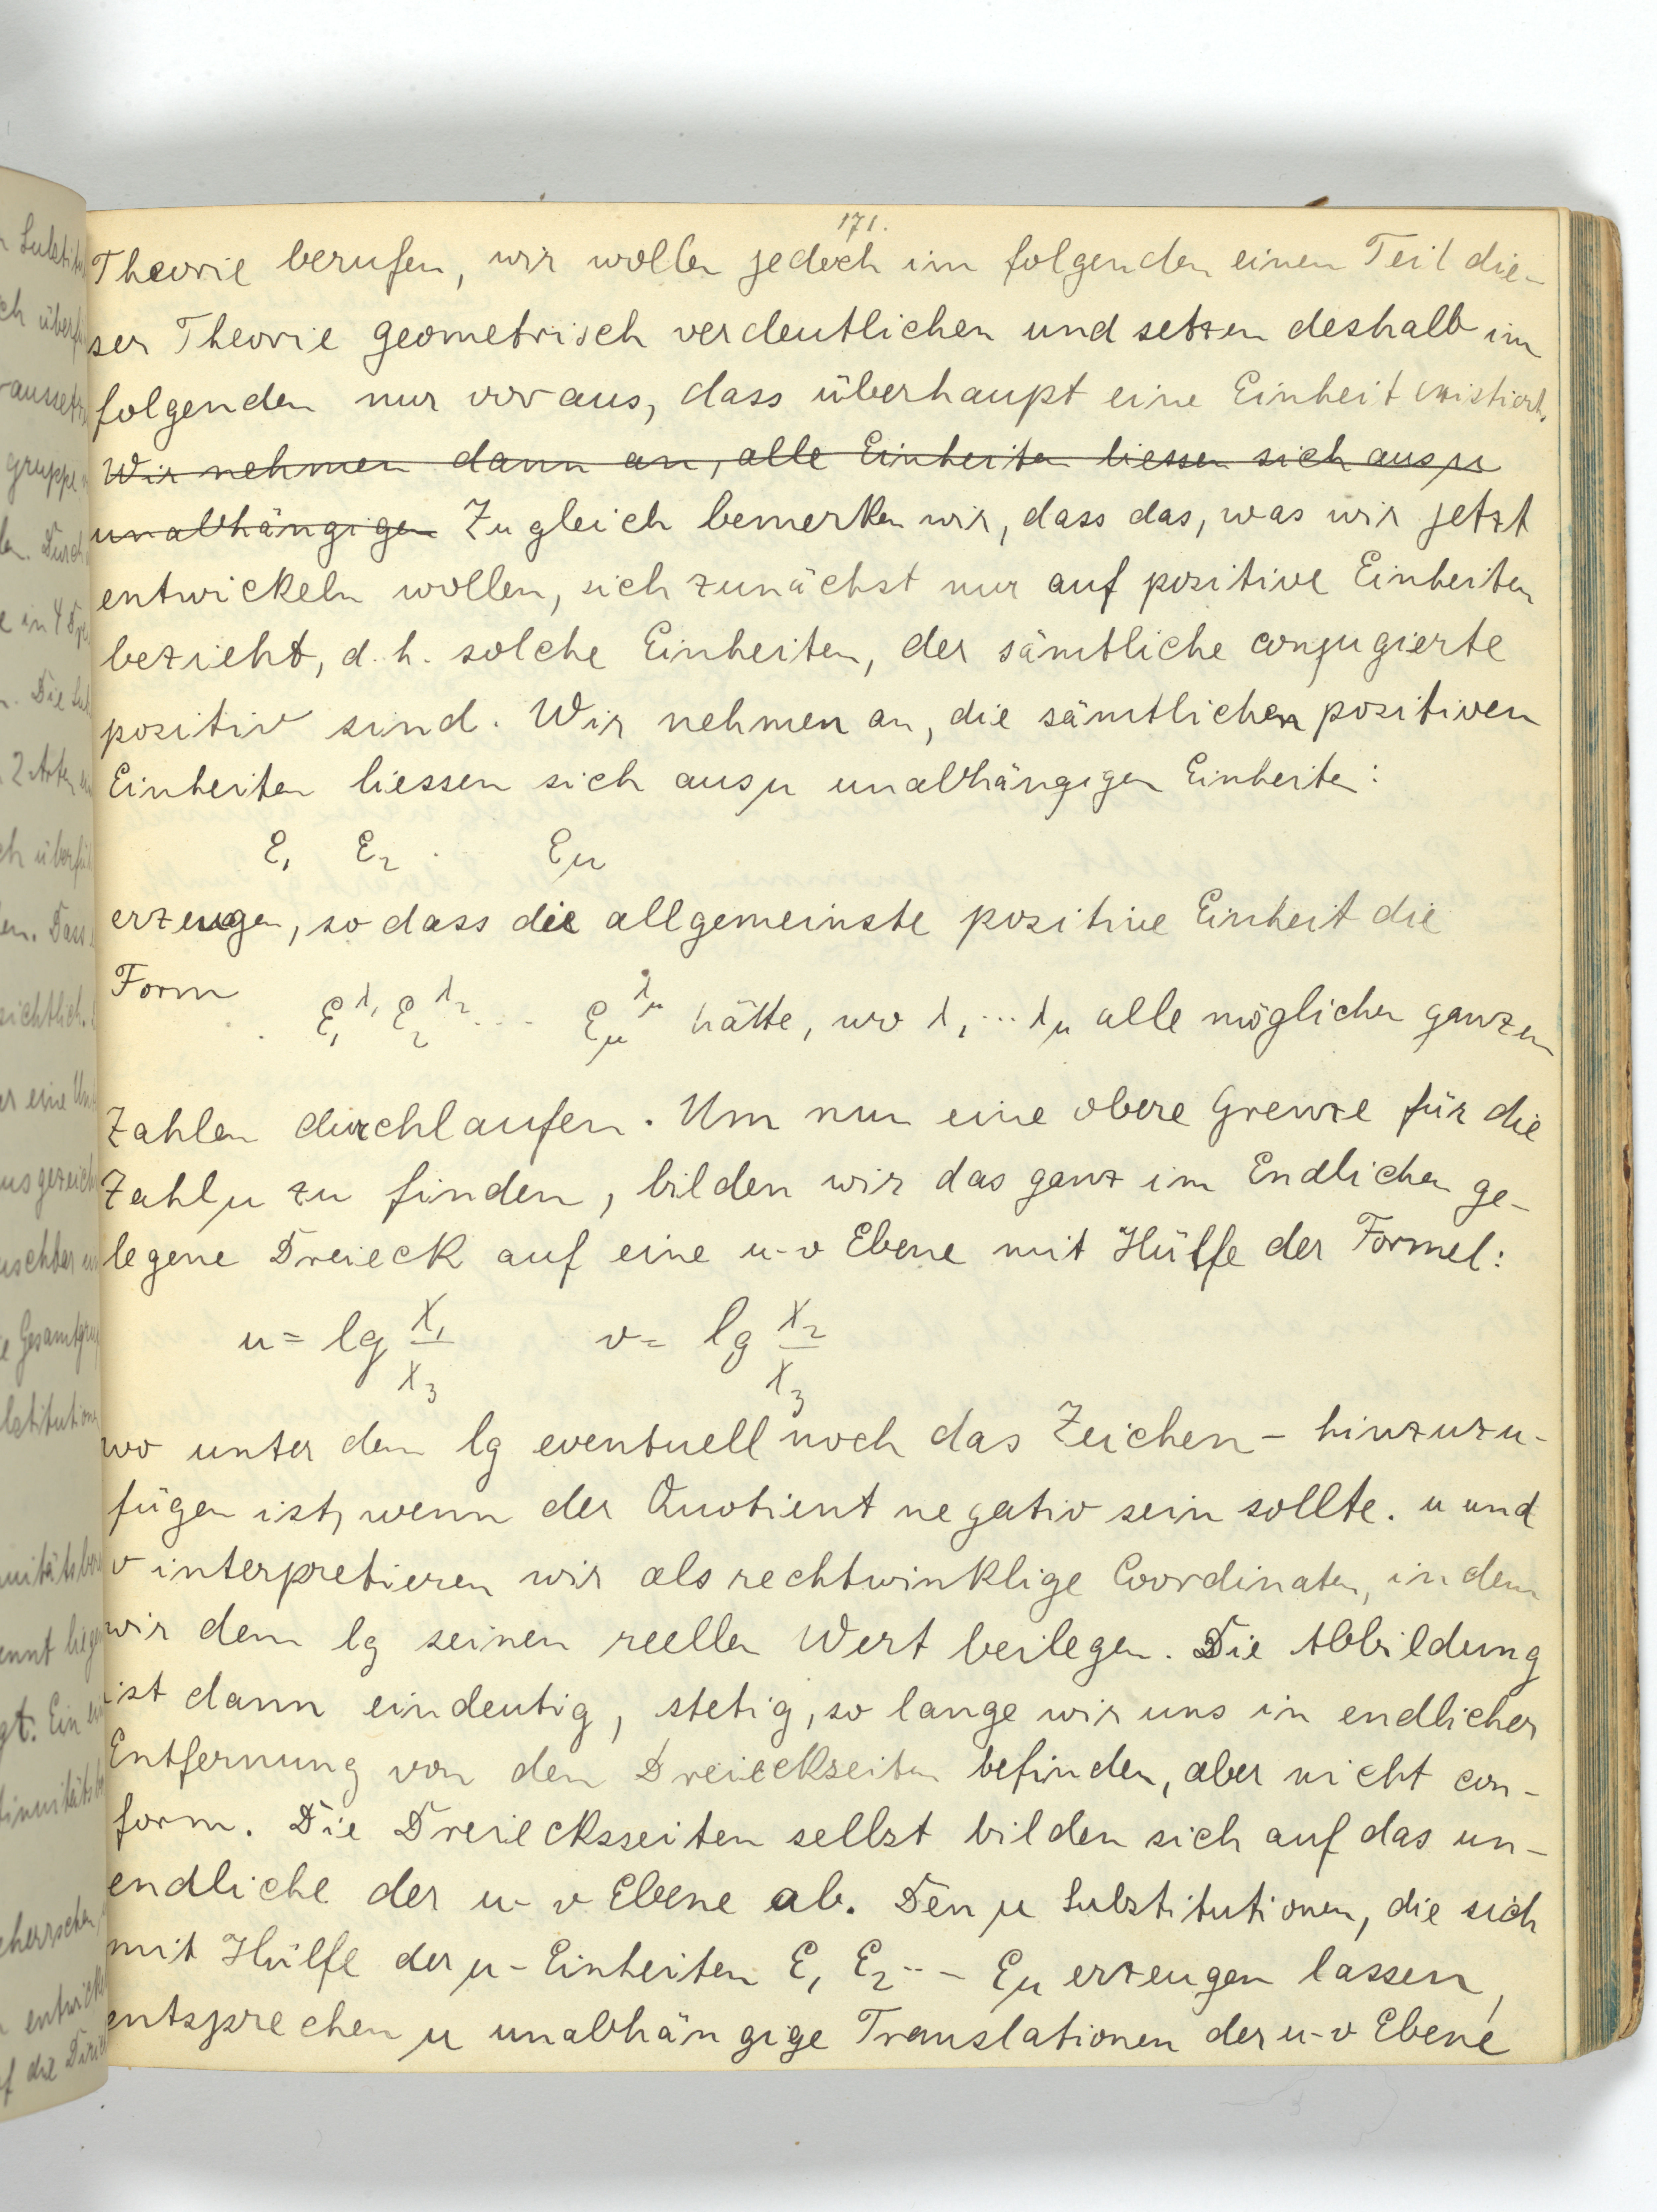 171.
Theorie berufen, wir wollen jedoch im folgenden einen Teil die-
ser Theorie geometrisch verdeutlichen und setzen deshalb im
folgenden nur voraus, dass überhaupt eine Einheit existiert.
Wir nehmen dann an, alle Einheiten liessen sich aus μ
unabhängigen Zugleich bemerken wir, dass das, was wir jetzt
entwickeln wollen, sich zunächst nur auf positive Einheiten
bezieht, d. h. solche Einheiten, der sämtliche conjugierte
positiv sind. Wir nehmen an, die sämtlichen positiven
Einheiten liessen sich aus μ unabhängigen Einheiten:
ε₁ ε₂ . ε_μ
erzeugen, so dass die allgemeinste positive Einheit die
Form ε₁^λ₁ ε₂^λ₂ ... ε_μ^λ_μ hätte, wo λ₁ ... λ_μ alle möglichen ganzen
Zahlen durchlaufen. Um nun eine obere Grenze für die
Zahl μ zu finden, bilden wir das ganz im Endlichen ge-
legene Dreieck auf eine u-v Ebene mit Hülfe der Formel:
u = lg x₁/x₃ v = lg x₂/x₃
wo unter dem lg eventuell noch das Zeichen - hinzuzu-
fügen ist, wenn der Quotient negativ sein sollte. u und
v interpretieren wir als rechtwinklige Coordinaten, indem
wir dem lg seinen reellen Wert beilegen. Die Abbildung
ist dann eindeutig, stetig, so lange wir uns in endlicher
Entfernung von den Dreieckseiten befinden, aber nicht con-
form. Die Dreiecksseiten selbst bilden sich auf das un-
endliche der u-v Ebene ab. Den μ Substitutionen, die sich
mit Hülfe der μ-Einheiten ε₁ ε₂ ... ε_μ erzeugen lassen,
entsprechen μ unabhängige Translationen der u-v Ebene